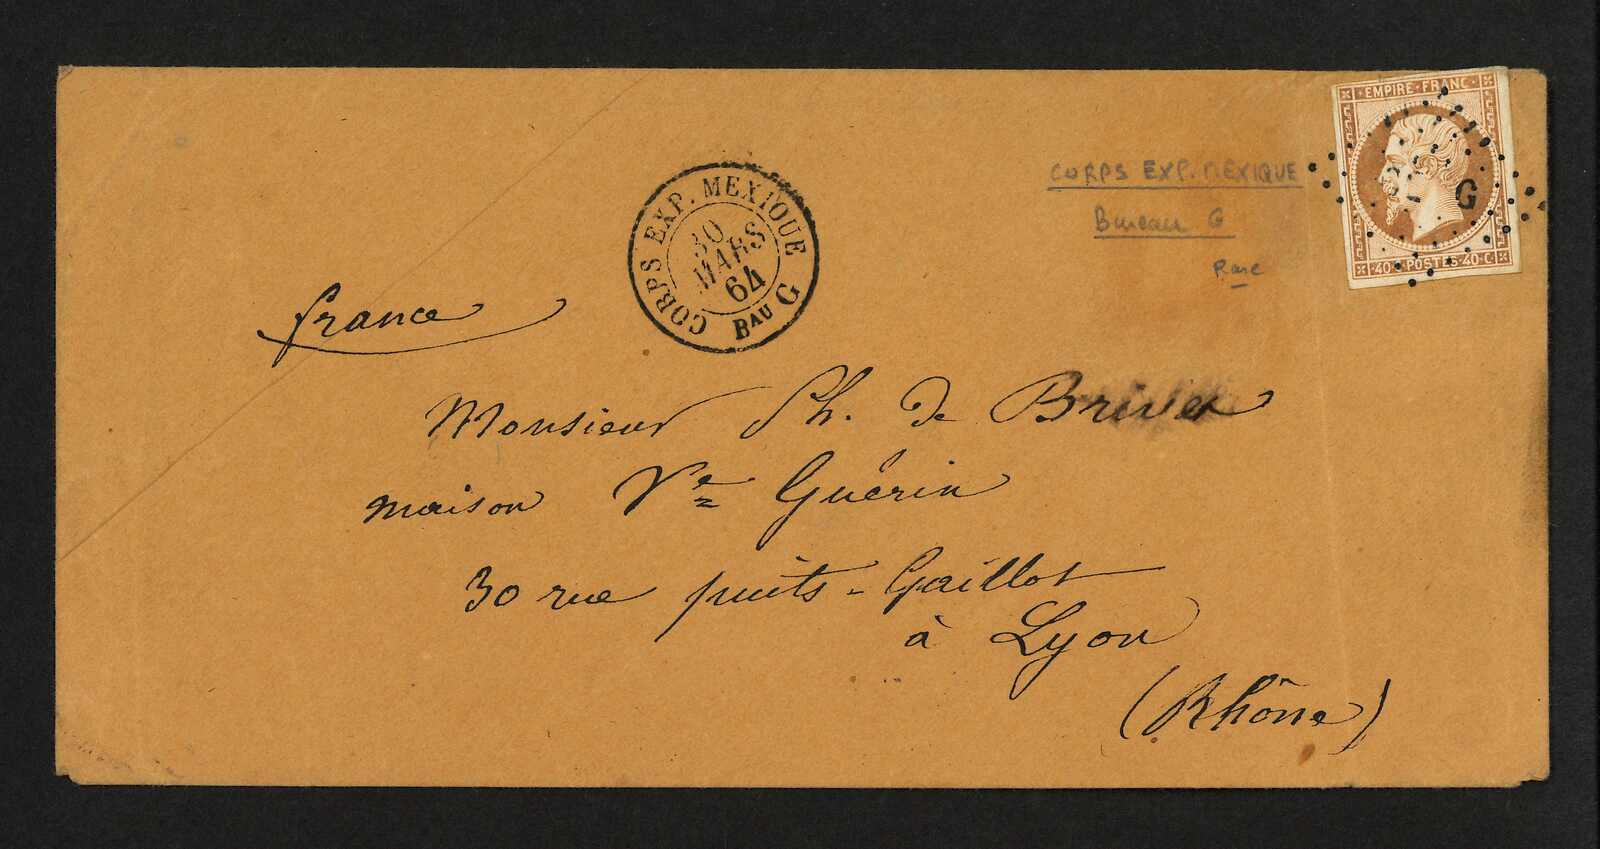 EMPIRE · FRANC ·
G
40 · POSTES · 40 · C ·
CORPS EXP. MEXIQUE
Bureau G
Rare
CORPS EXP. MEXIQUE
30
MARS
64
Bau G
france
Monsieur Ph. de Brives
maison Ve Guérin
30 rue puits-Gaillot
à Lyon
(Rhône)